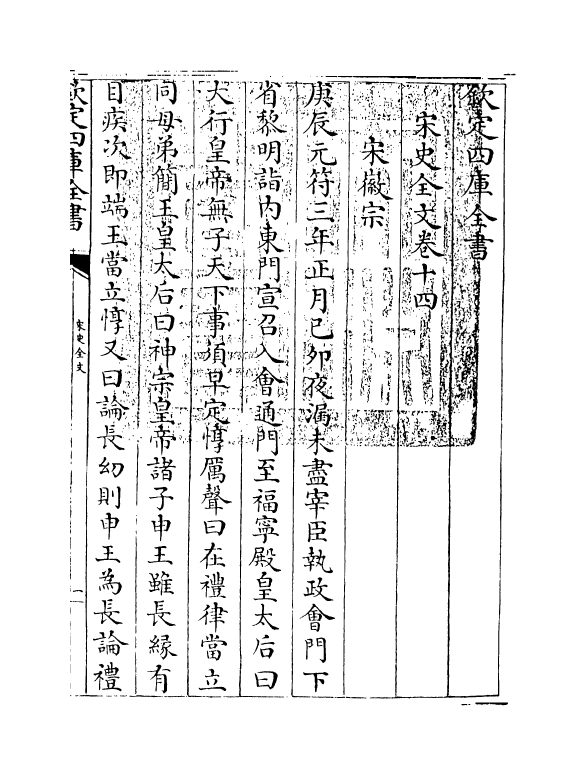 欽定四庫全書
宋史全文卷十四
宋徽宗
庚辰元符三年正月己夘夜漏未盡宰臣執政會門下
省黎明詣内東門宣召入會通門至福寧殿皇太后曰
大行皇帝無子天下事須早定惇厲聲曰在禮律當立
同母弟簡王皇太后曰神宗皇帝諸子申王雖長縁有
目疾次即端王當立惇又曰論長幼則申王為長論禮
欽定四庫全書
宋史全文
一